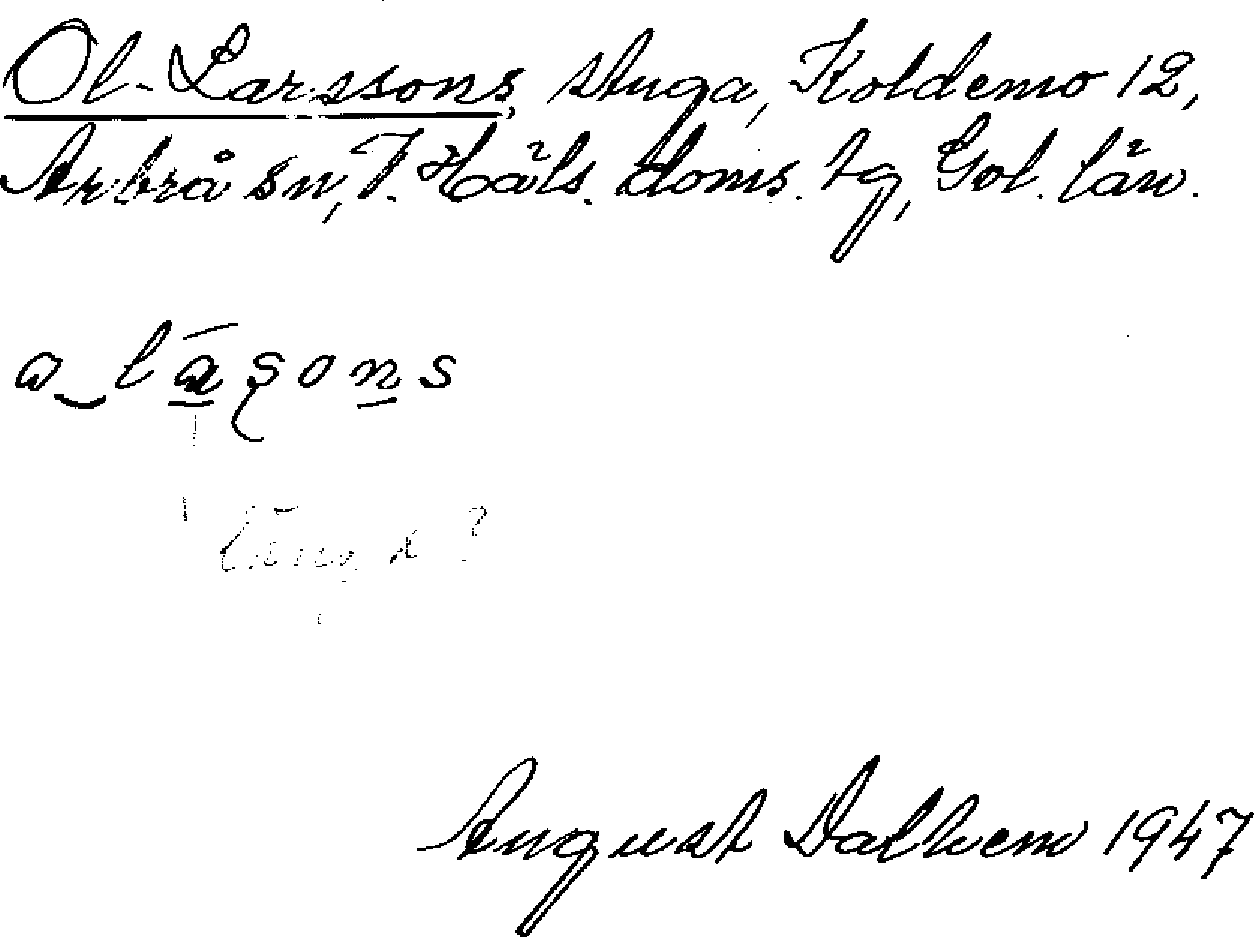 Ol-Larssons, stuga, Koldemo 12,
Arbrå sn, V. Häls. doms. tg, Gvl. län.
a‿lāsons
långt?
August Dalhem 1947